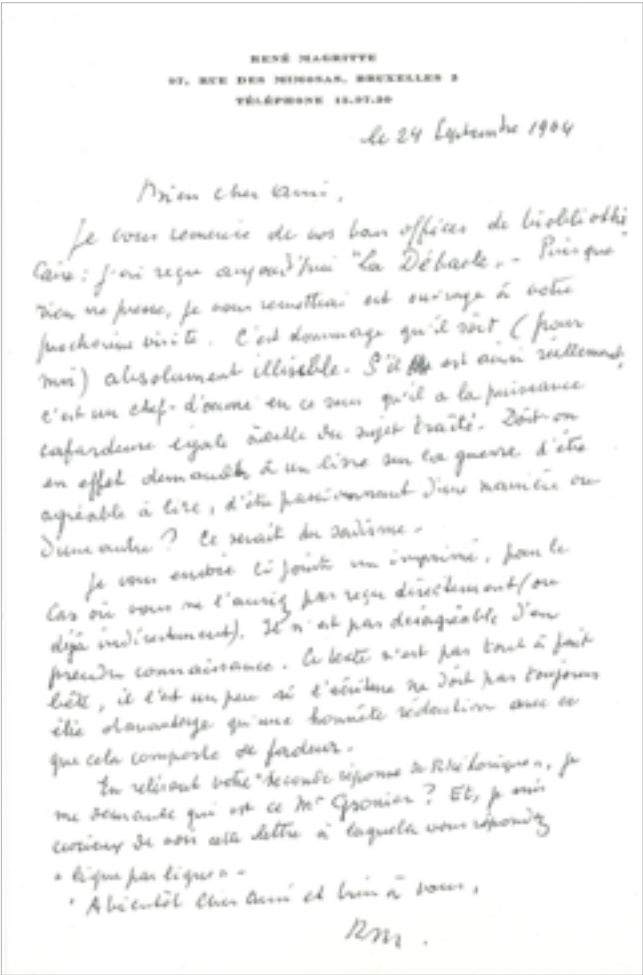 RENÉ MAGRITTE
97, RUE DES MIMOSAS, BRUXELLES 3
TÉLÉPHONE 15.07.30
le 24 Septembre 1964
Bien cher ami,
Je vous remercie de vos bons offices de bibliothé
caire : j'ai reçu aujourd'hui "La Débacle". - Puisque
rien ne presse, je vous remettrai cet ouvrage à votre
prochaine visite. C'est dommage qu'il soit (pour
moi) absolument illisible. S'il est ainsi réellement,
c'est un chef-d'œuvre en ce sens qu'il a la puissance
cafardeuse égale à celle du sujet traité. Doit-on
en effet demander à un livre sur la guerre d'être
agréable à lire, d'être passionnant d'une manière ou
d'une autre ? Ce serait du sadisme.
Je vous envoie ci joint un imprimé, pour le
cas où vous ne l'auriez pas reçu directement (ou
déjà indirectement). Il n'est pas désagréable d'en
prendre connaissance. Ce texte n'est pas tout à fait
bête, il l'est un peu si l'écriture ne doit pas toujours
être davantage qu'une honnête rédaction avec ce
que cela comporte de fadeur.
En relisant votre "Seconde réponse de Rhétorique", je
me demande qui est ce Mr Gronier ? Et, je suis
curieux de voir cette lettre à laquelle vous répondez
"ligne par ligne" -
A bientôt cher ami et bien à vous,
RM.